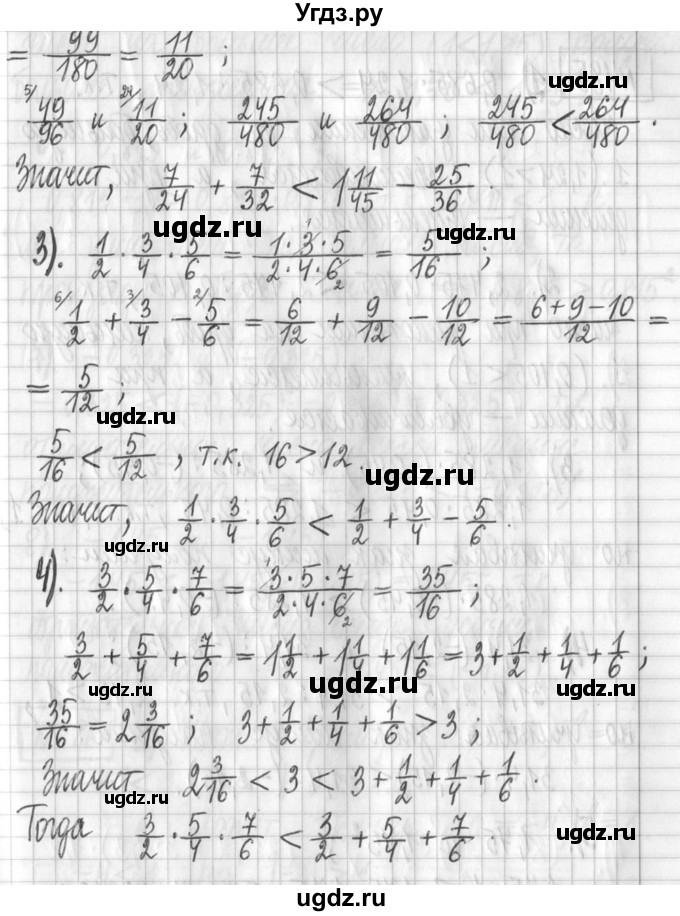 Угдз.ру
= 99/180 = 11/20 ;
ugdz.ru
5/ 49/96 и 24/ 11/20 ; 245/480 и 264/480 ; 245/480 < 264/480 .
ugdz.ru ugdz.ru
Значит, 7/24 + 7/32 < 1 11/45 − 25/36 .
ugdz.ru
3). 1/2 · 3/4 · 5/6 = 1·3·5/2·4·6 = 5/16 ;
1 2
ugdz.ru
6/ 1/2 + 3/ 3/4 − 2/ 5/6 = 6/12 + 9/12 − 10/12 = 6+9−10/12 =
= 5/12 ;
ugdz.ru ugdz.ru
5/16 < 5/12 , т.к. 16 > 12 .
ugdz.ru
Значит, 1/2 · 3/4 · 5/6 < 1/2 + 3/4 − 5/6 .
ugdz.ru
4). 3/2 · 5/4 · 7/6 = 3·5·7/2·4·6 = 35/16 ;
1 2
ugdz.ru
3/2 + 5/4 + 7/6 = 1 1/2 + 1 1/4 + 1 1/6 = 3 + 1/2 + 1/4 + 1/6 ;
ugdz.ru ugdz.ru ugdz.ru
35/16 = 2 3/16 ; 3 + 1/2 + 1/4 + 1/6 > 3 ;
Значит 2 3/16 < 3 < 3 + 1/2 + 1/4 + 1/6 .
ugdz.ru ugdz.ru
Тогда 3/2 · 5/4 · 7/6 < 3/2 + 5/4 + 7/6 .
ugdz.ru
ugdz.ru